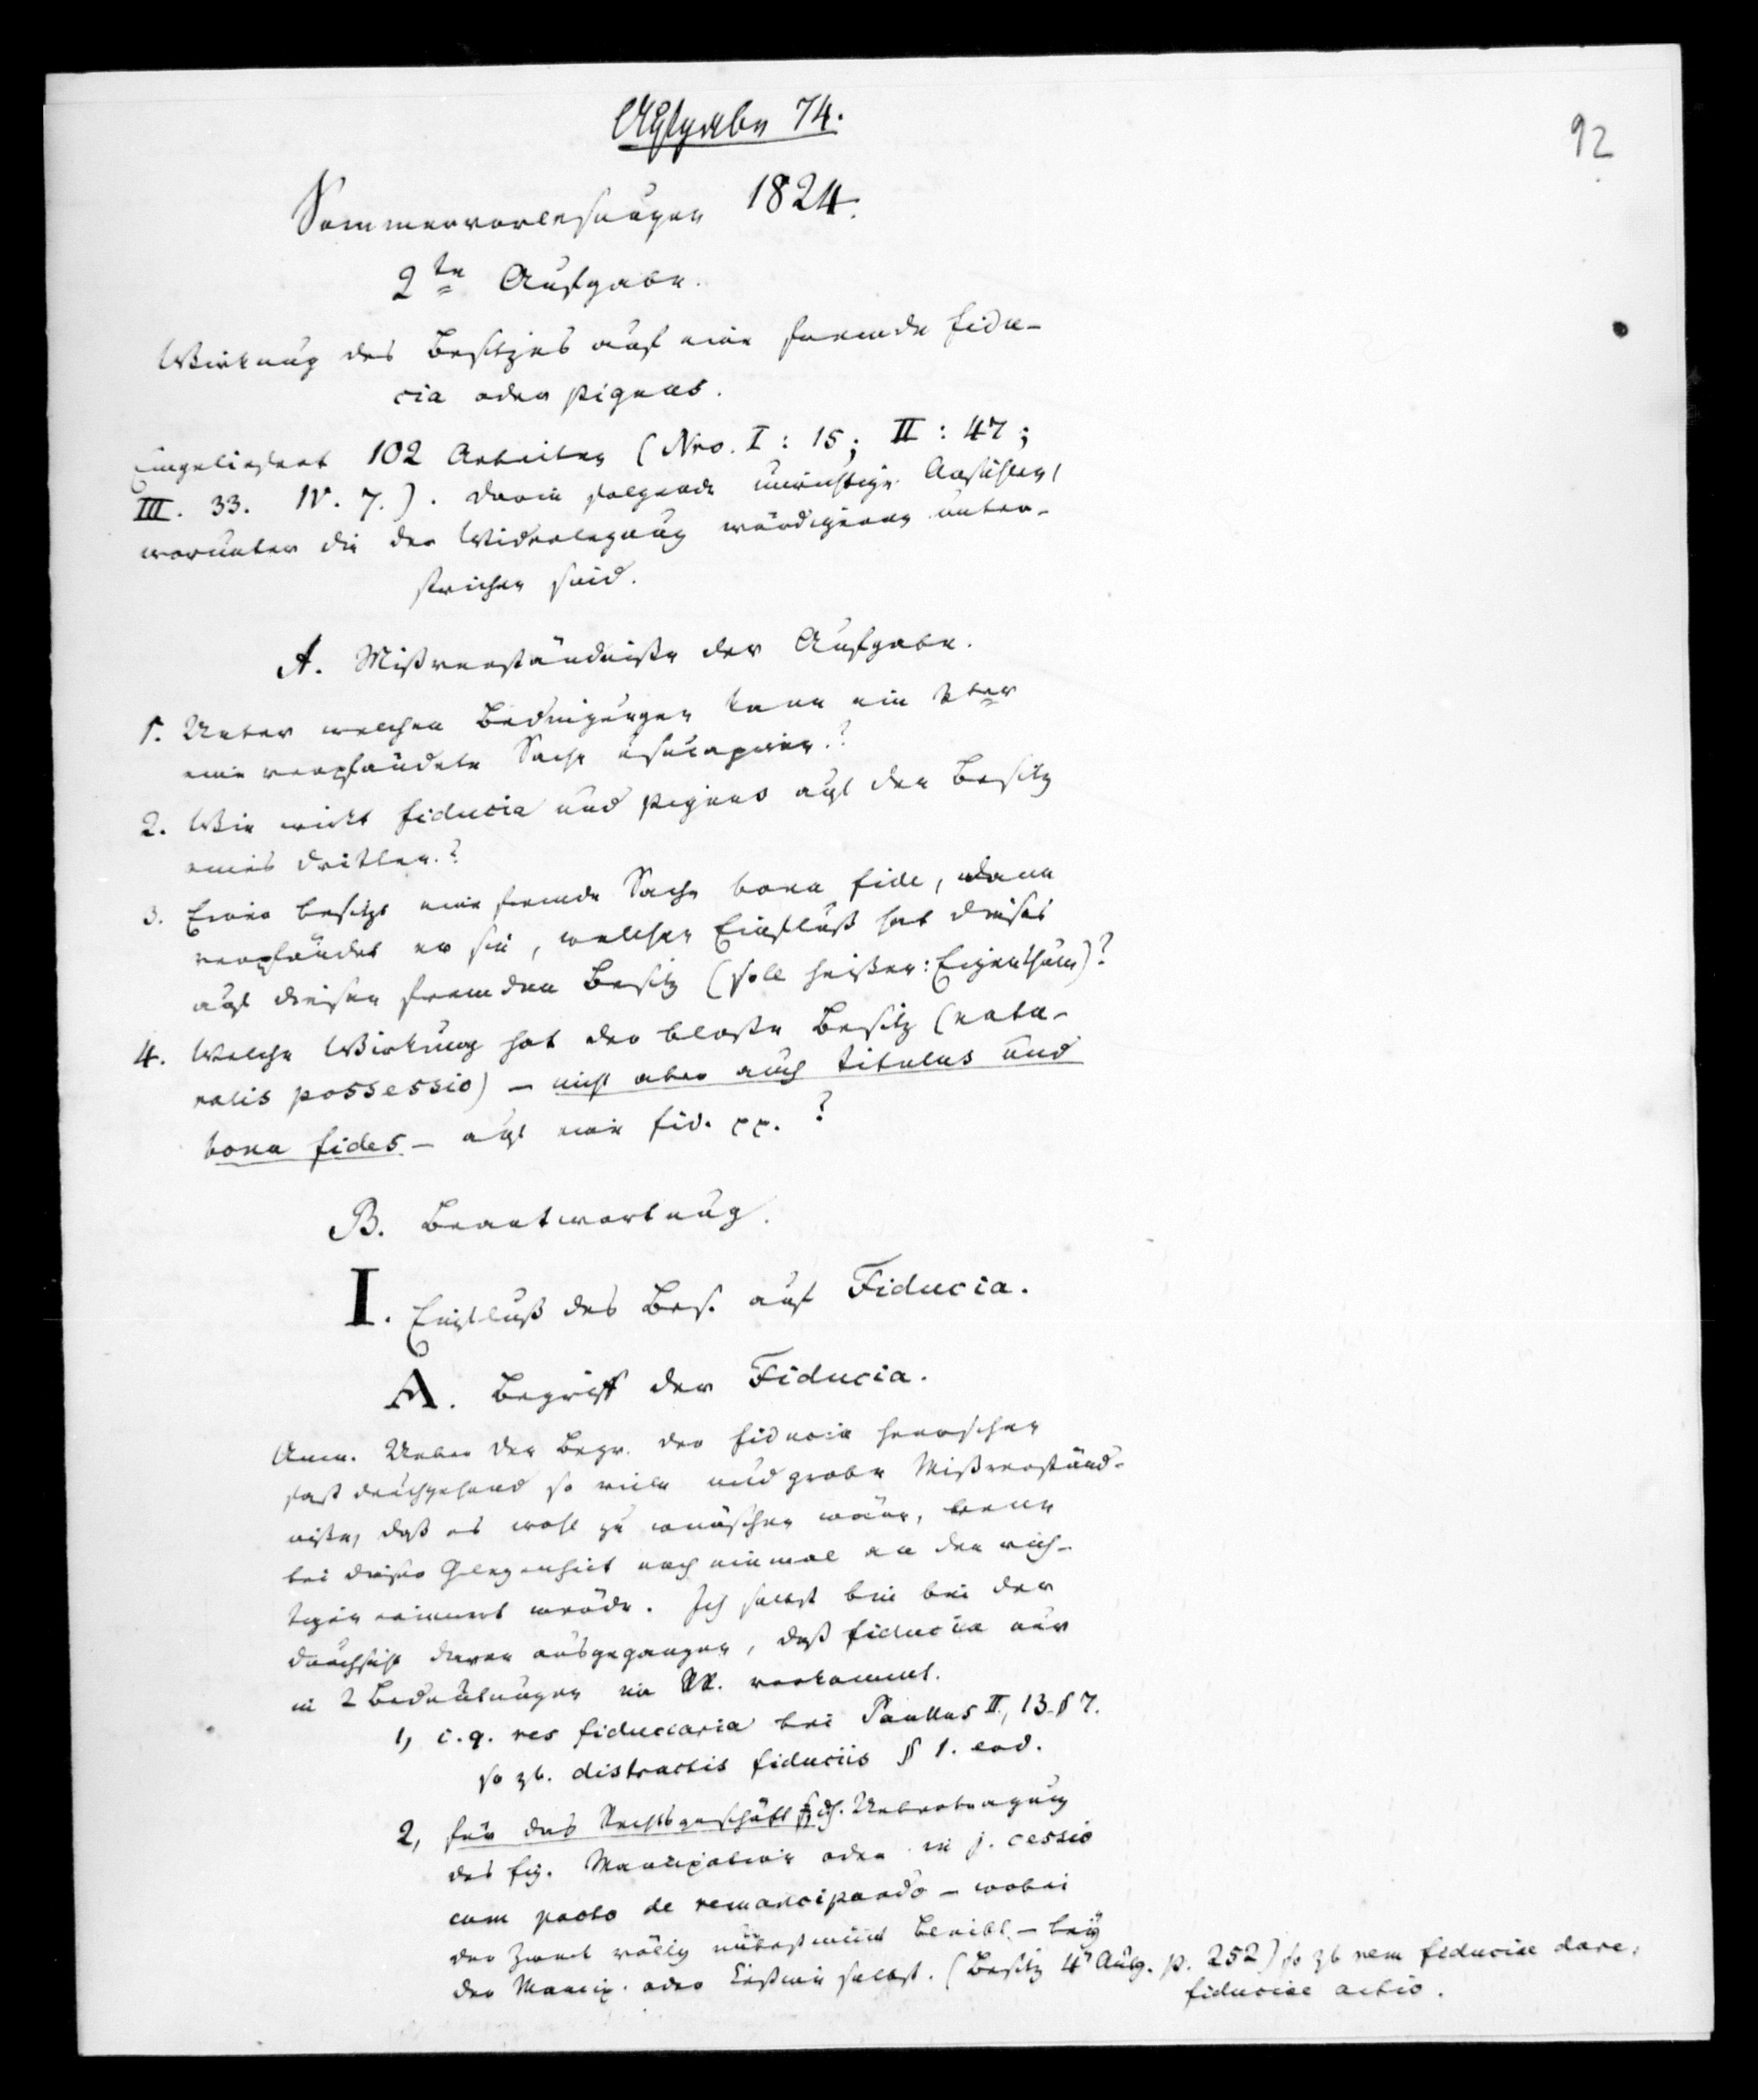 Aufgabe 74.
92
Sommervorlesungen 1824.
2te Aufgabe.
Wirkung des Besitzes auf eine fremde fidu-
cia oder pignus.
Eingeliefert 102 Arbeiten (Nro. I : 15; II : 47;
III. 33. IV. 7.). Darin folgende unrichtige Ansichten,
worunter die der Widerlegung würdigeren unter-
strichen sind.
A. Mißverständniße der Aufgabe.
1. Unter welchen Bedingungen kann ein 3ter
eine verpfändete Sache usucapiren?
2. Wie wirkt fiducia und pignus auf den Besitz
eines dritten?
3. Einer besitzt eine fremde Sache bona fide, dann
verpfändet er sie, welchen Einfluß hat dieses
auf diesen fremden Besitz (soll heißen: Eigenthum)?
4. Welche Wirkung hat der bloße Besitz (natu-
ralis possessio) – nicht aber auch titulus und
bona fides – auf eine fid. pp.?
B. Beantwortung.
I. Einfluß des Bes. auf Fiducia.
A. Begriff der Fiducia.
Anm. Ueber den Begr. der fiducia herrschen
fast durchgehend so viele und grobe Mißverständ-
niße, daß es wohl zu wünschen wäre, wenn
bei dieser Gelegenheit noch einmal an den rich-
tigen erinnert würde. Ich selbst bin bei der
Durchsicht davon ausgegangen, daß fiducia nur
in 2 Bedeutungen im RR. vorkommt.
1, i. q. res fiduciaria bei Paullus II, 13. § 7.
so zb. distractis fiduciis § 1. eod.
2, für das Rechtsgeschäft dh. Uebertragung
des Eig. Mancipation oder in j. cessio
cum pacto de remancipando – wobei
der Zweck völlig unbestimmt bleibt – bey
der Mancip. oder Cession selbst. (Besitz 4te Ausg. p. 252) so zb rem fiduciae dare,
fiduciae actio.